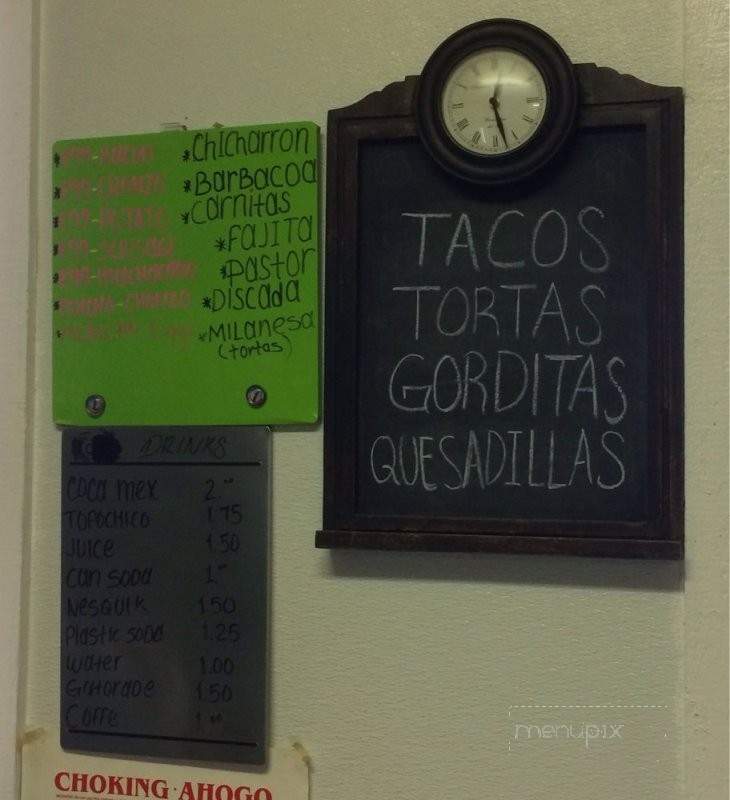 *Chicharron
*BarBacoa
*Carnitas
*FAJITA
*Pastor
*Discada
*MILanesa
(tortas)
DRINKS
COCA mex 2.°°
TOPOCHICO 1.75
JUICE 1.50
can SODA 1°°
NesQuIK 1.50
Plastic SODA 1.25
water 1.00
GatoraDe 1.50
Coffe 1.°°
TACOS
TORTAS
GORDITAS
QUESADILLAS
menupix
CHOKING·AHOGO